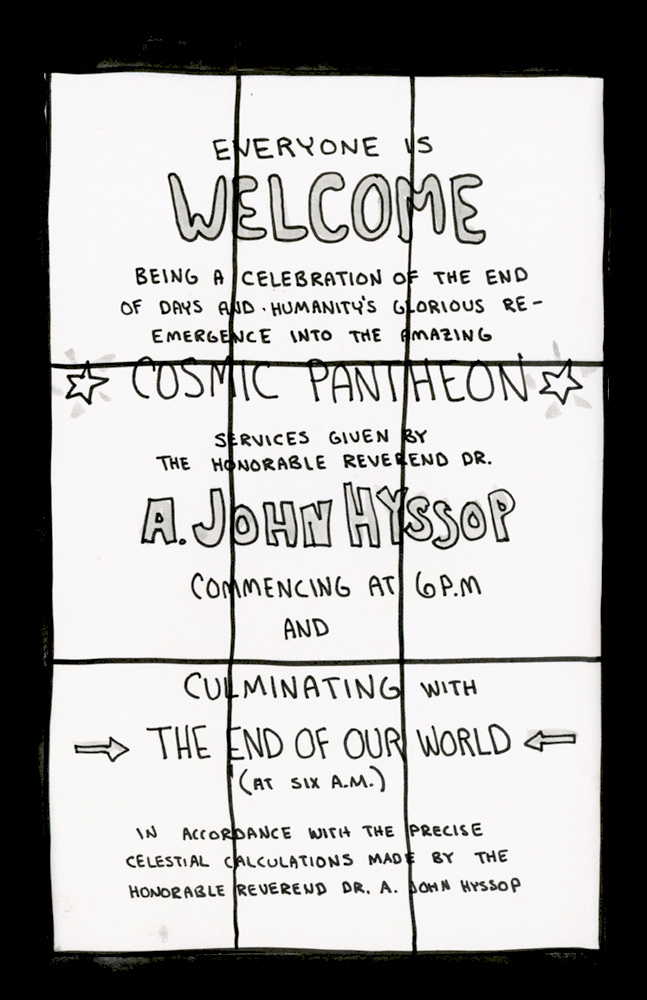 EVERYONE IS
WELCOME
BEING A CELEBRATION OF THE END
OF DAYS AND HUMANITY'S GLORIOUS RE-
EMERGENCE INTO THE AMAZING
COSMIC PANTHEON
SERVICES GIVEN BY
THE HONORABLE REVEREND DR.
A. JOHN HYSSOP
COMMENCING AT 6 P.M
AND
CULMINATING WITH
THE END OF OUR WORLD
(AT SIX A.M.)
IN ACCORDANCE WITH THE PRECISE
CELESTIAL CALCULATIONS MADE BY THE
HONORABLE REVEREND DR. A. JOHN HYSSOP